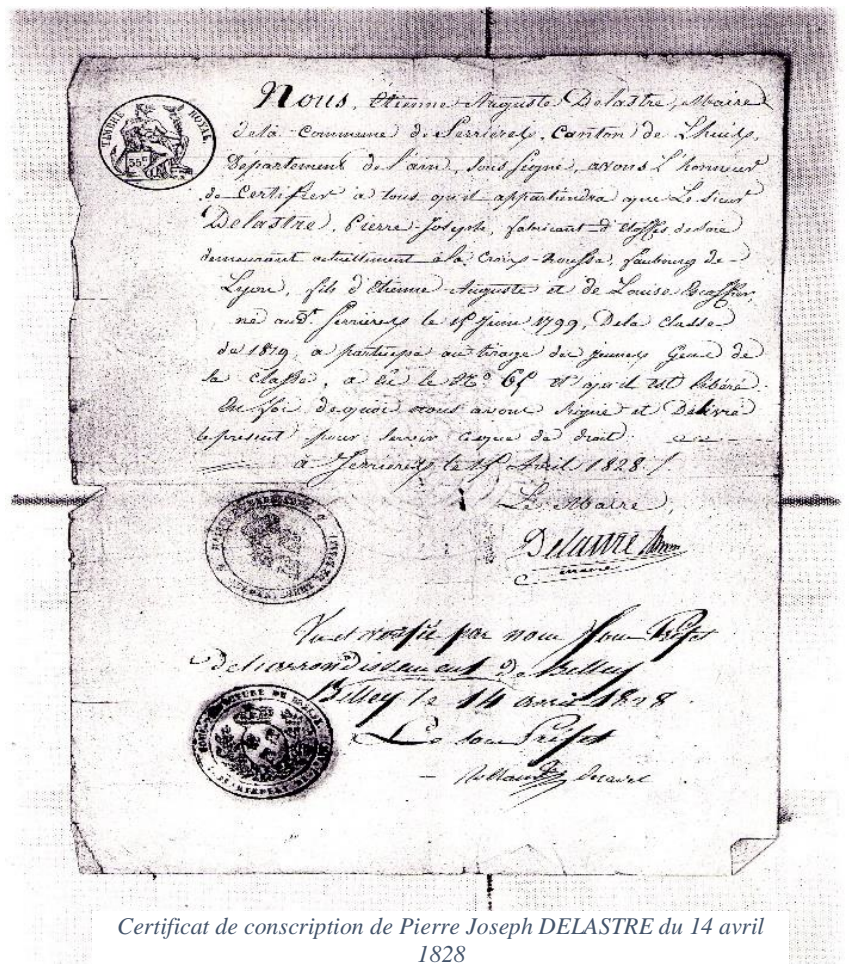 TIMBRE ROYAL
35 c
Nous, Etienne Auguste Delastre, Maire
dela Commune de Serrieres, Canton de Lhuis,
Département de l'ain, sous signé, avons l'honneur
de Certifier a tous qu'il appartiendra que Le Sieur
Delastre, Pierre Joseph, fabricant d'étoffes de soie
demeurant actuellement ala Croix-Rousse, faubourg de
Lyon, fils d'Etienne Auguste et de Louise
né aud. Serrieres le Juin 1799, Dela Classe
de 1819, a participé au tirage des jeunes Gens de
sa Classe, a eu le N° et qu'il est libéré.
En foi dequoi nous avons signé et Délivré
le present pour servir aque de droit.
a Serrieres le Avril 1828 /
Le Maire,
Delastre
maire
Vu et par nous Sous Préfet
de l'arrondissement de Belley
Belley le 14 avril 1828
Le Sous Préfet
Certificat de conscription de Pierre Joseph DELASTRE du 14 avril
1828